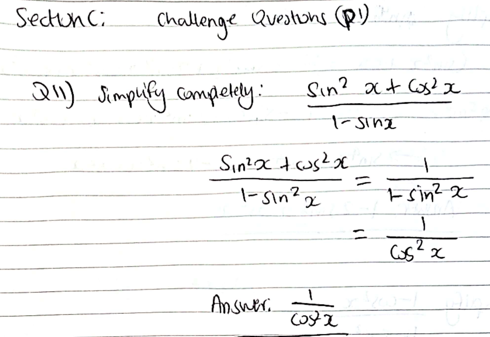 Section C: Challenge Questions (P1)
Q11) Simplify completely: sin² x + cos² x / 1 - sinx
sin²x + cos²x / 1 - sin²x = 1 / 1 - sin² x
= 1 / cos² x
Answer: 1 / cos²x